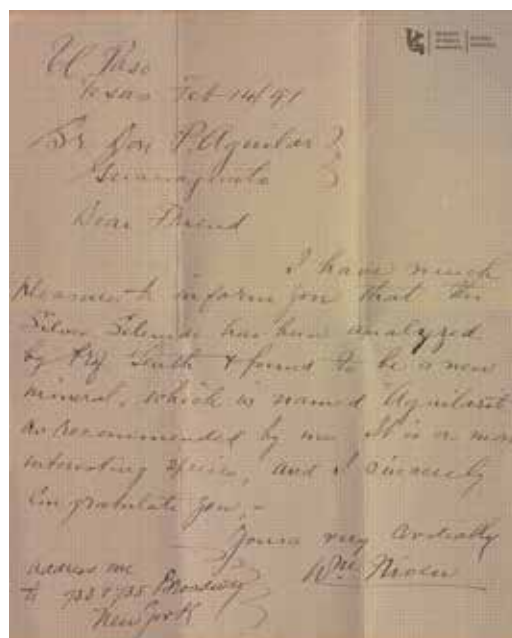 El Paso
Texas Feb 14/91
Sr Don P. Aguilar
Guanajuato
Dear Friend
I have much
pleasure to inform you that the
Silver Selenide has been analyzed
by Prof Genth & found to be a new
mineral, which is named Aguilarit
as recommended by me. It is a most
interesting species, and I sincerely
Congratulate you. -
Yours very Cordially
Wm Niven
address me
to 733 & 735 Broadway
New York